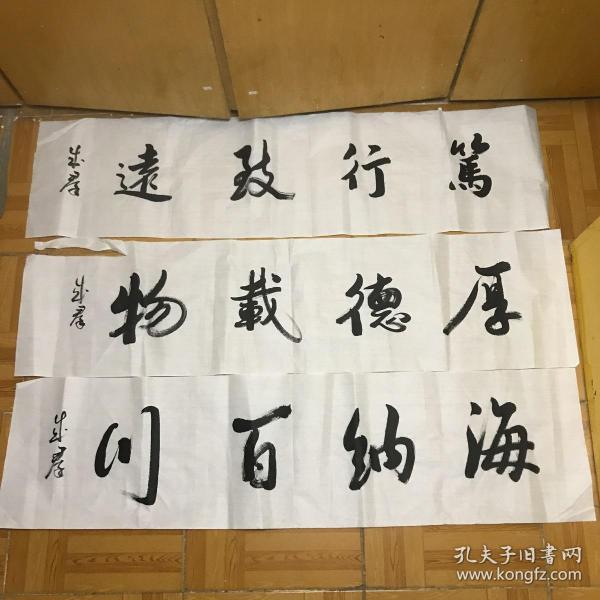 篤行致遠
成群
厚德載物
成群
海納百川
成群
孔夫子旧書网
www.kongfz.com